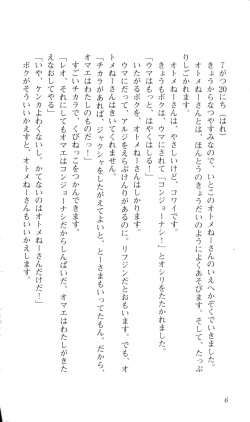 7がつ20にち（はれ）
きょうからなつやすみなので、いとこのオトメねーさんのいえへかぞくでいきました。
オトメねーさんとは、ほんとうのきょうだいのようによくあそびます。そして、たっぷ
りしごかれます。
オトメねーさんは、やさしいけど、コワイです。
きょうもボクは、ウマにされて「コンジョーナシ！」とオシリをたたかれました。
「ウマはもっと、はやくはしる！」
オトメねーさんは、ボクをしかります。
ウマにだって、アルジをえらぶけんりがあるのに、リフジンだとおもいます。でも、オ
トメねーさんはきいてくれません。
「チカラがあれば、ジャクシャをしたがえてよいと、とーさまもいってたもん。だから、
オマエはわたしのものだっ！」
すごいチカラで、くびねっこをつかんできます。
「レオ、それにしてもオマエはコンジョーナシだからしんぱいだ。オマエはわたしがきた
えなおしてやる」
「いや、ケンカよわくないし、かてないのはオトメねーさんだけだ！」
ボクがそういいかえすと、オトメねーさんもいいかえします。
6